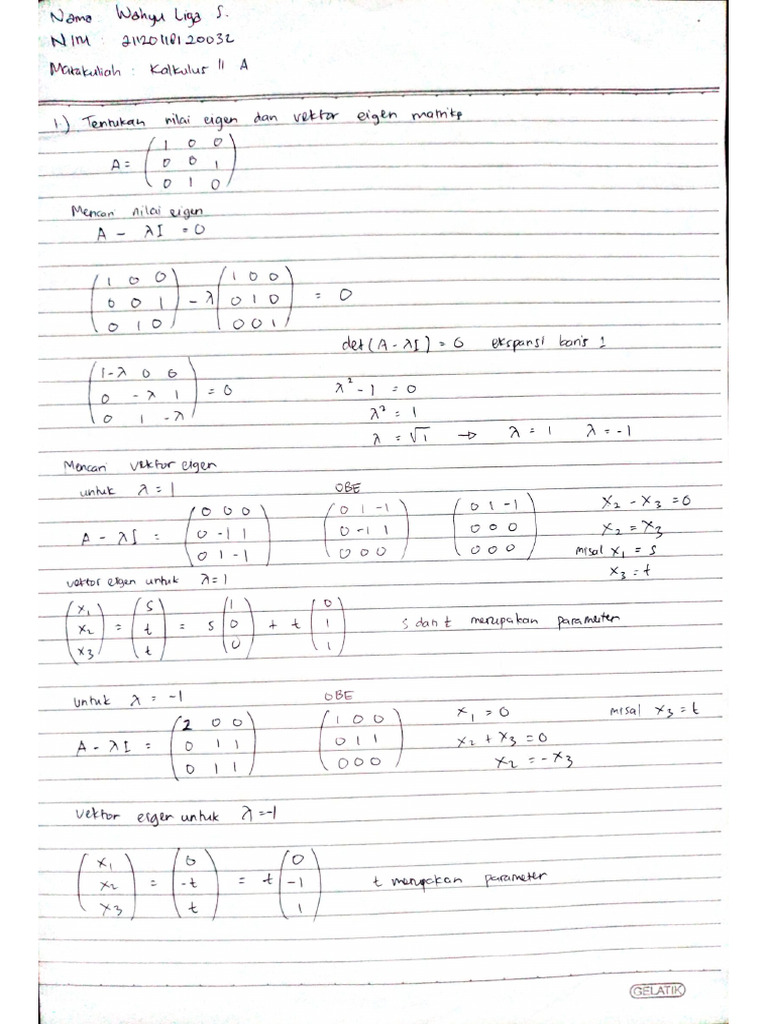 Nama : Wahyu Liga S.
NIM : 21120118120032
Matakuliah : Kalkulus II A
1.) Tentukan nilai eigen dan vektor eigen matriks
A = (1 0 0
0 0 1
0 1 0)
Mencari nilai eigen
A - λI = 0
(1 0 0
0 0 1
0 1 0) - λ (1 0 0
0 1 0
0 0 1) = 0
det(A - λI) = 0 ekspansi baris 1
(1-λ 0 0
0 -λ 1
0 1 -λ) = 0
λ² - 1 = 0
λ² = 1
λ = √1 → λ = 1 λ = -1
Mencari vektor eigen
untuk λ = 1 OBE
A - λI = (0 0 0
0 -1 1
0 1 -1) (0 1 -1
0 -1 1
0 0 0) (0 1 -1
0 0 0
0 0 0)
x₂ - x₃ = 0
x₂ = x₃
misal x₁ = s
x₃ = t
vektor eigen untuk λ = 1
(x₁
x₂
x₃) = (s
t
t) = s (1
0
0) + t (0
1
1) s dan t merupakan parameter
untuk λ = -1 OBE
A - λI = (2 0 0
0 1 1
0 1 1) (1 0 0
0 1 1
0 0 0)
x₁ = 0 misal x₃ = t
x₂ + x₃ = 0
x₂ = -x₃
vektor eigen untuk λ = -1
(x₁
x₂
x₃) = (0
-t
t) = t (0
-1
1) t merupakan parameter
GELATIK